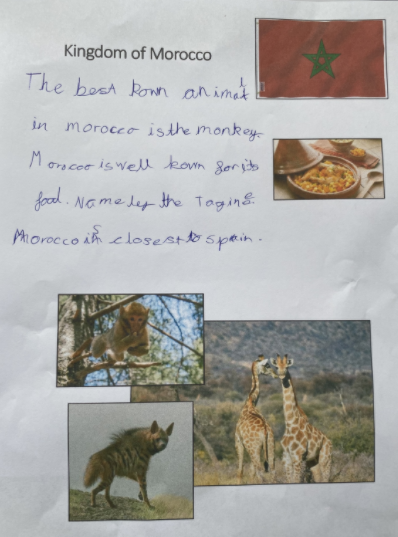 Kingdom of Morocco
The best kown animal
in morocco is the monkey.
Morocco is well kown for its
food. Namely the Tagine.
Morocco is closest to spain.